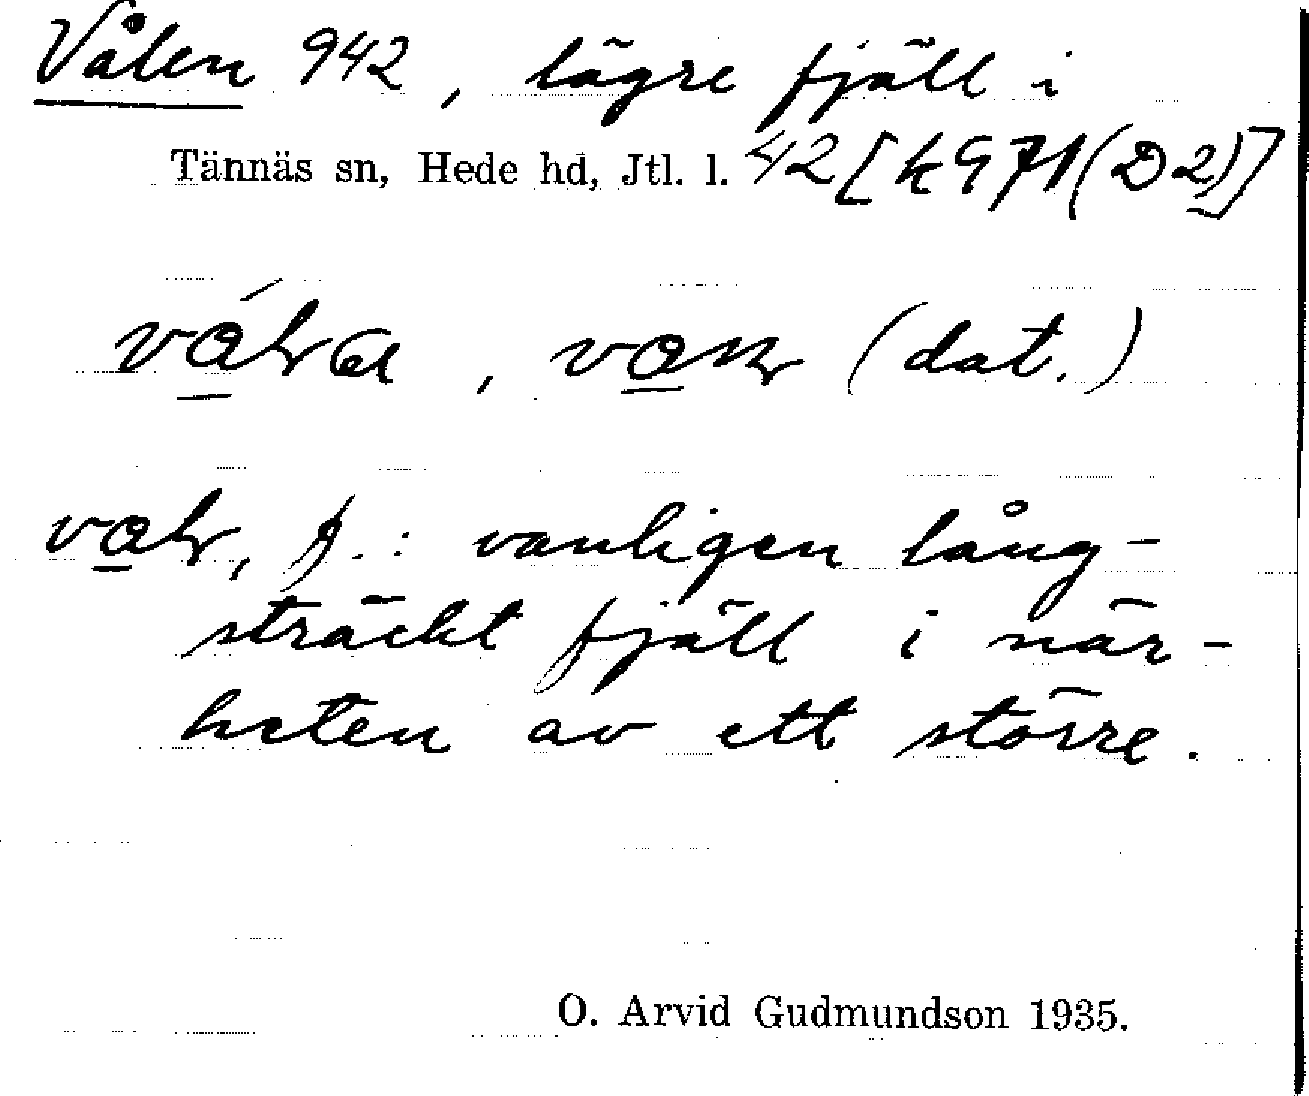 Vålen 942, lägre fjäll i
Tännäs sn, Hede hd, Jtl. l. 42 [k971(D2)]
(dat.)
f.: vanligen lång-
sträckt fjäll i när-
heten av ett större.
O. Arvid Gudmundson 1935.